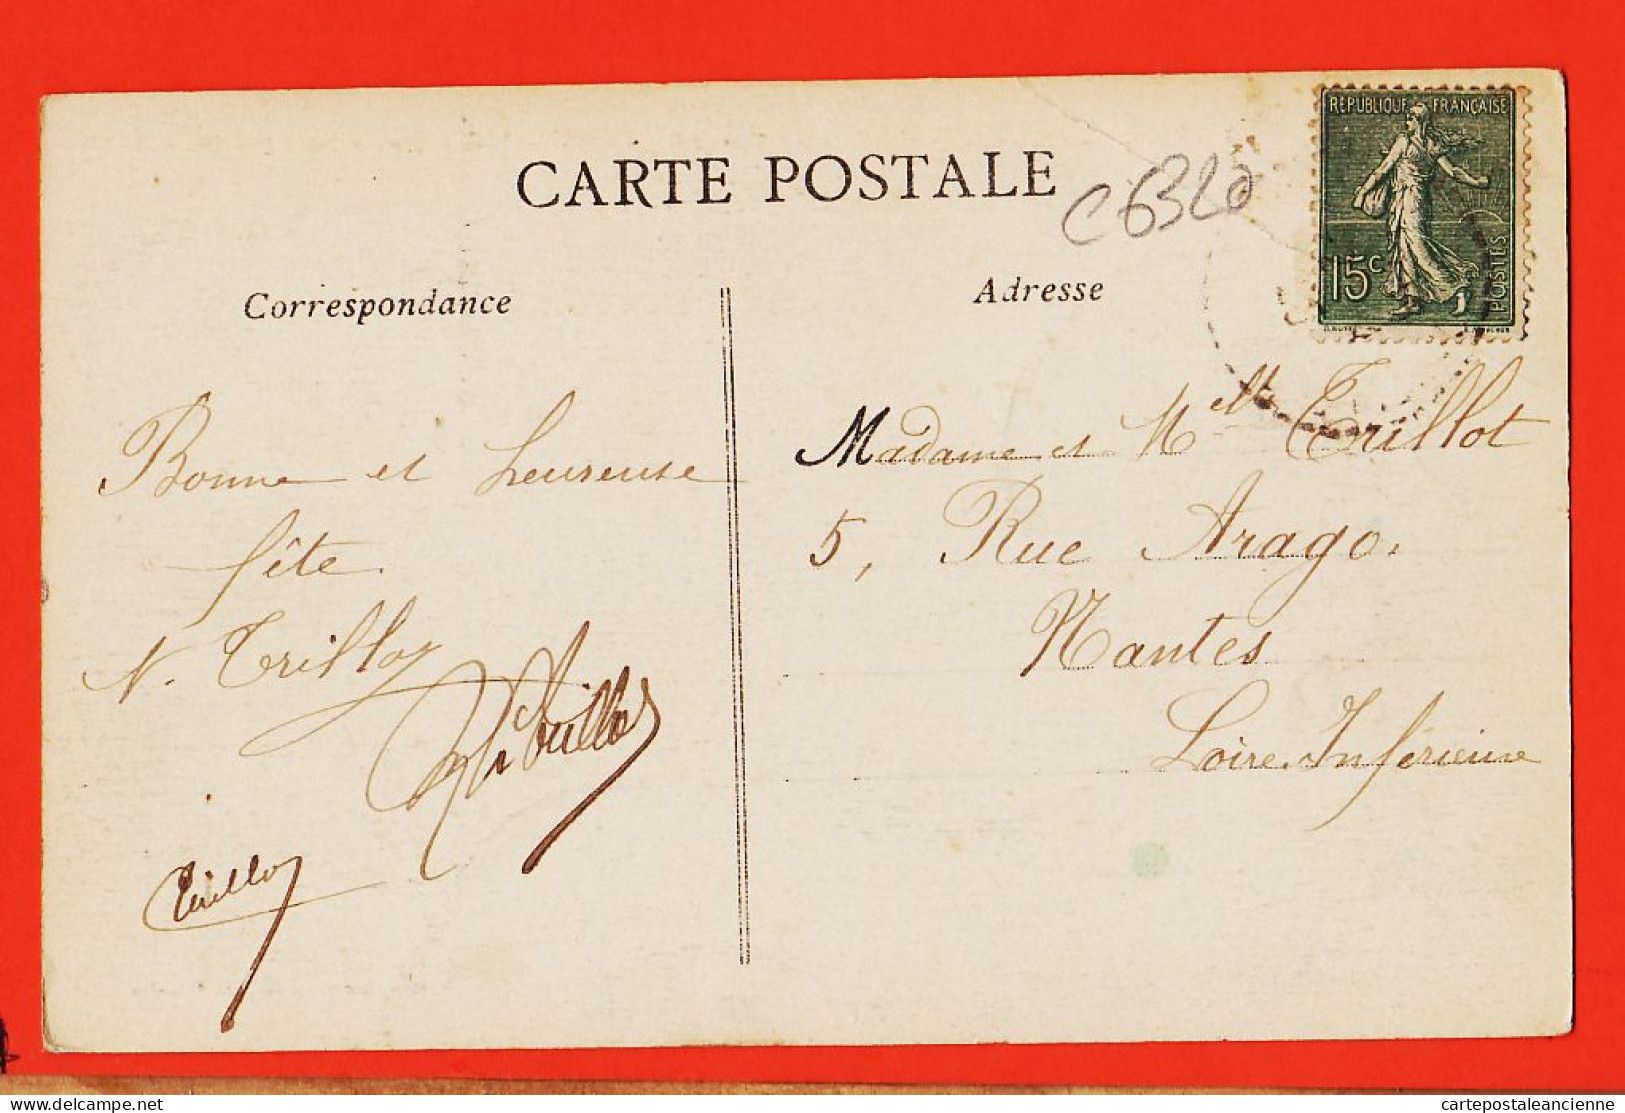 CARTE POSTALE
C6320
REPUBLIQUE FRANÇAISE
15c
POSTES
Correspondance
Adresse
Bonne et heureuse
fête
N. Trillot
Trillot
Trillot
Madame et Melle Trillot
5, Rue Arago.
Nantes
Loire Inférieure
delcampe.net
cartepostaleancienne